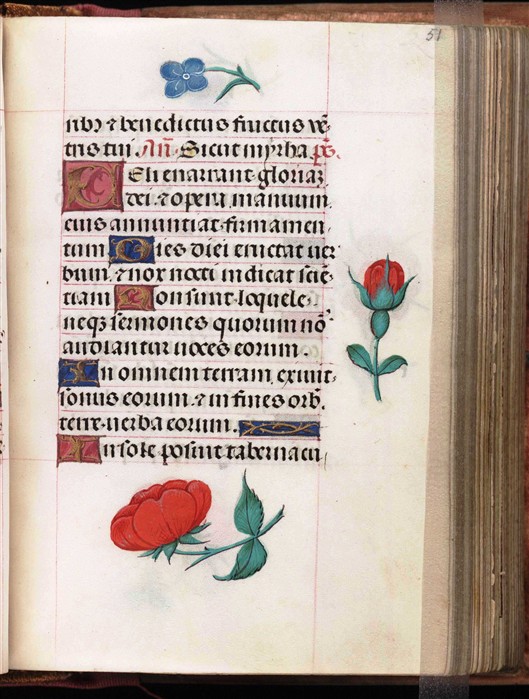 51
ribꝫ ⁊ benedictus fructus vē-
tris tui An̄. Sicut myrha. p̄s.
Celi enarrant gloriaꝫ
dei. ⁊ opera manuum
eius annuntiat firmamen-
tum Dies diei eructat uer
bum. ⁊ nox nocti indicat sciē-
tiam Non sunt loquele.
neqꝫ sermones quorum nō
audiantur uoces eorum.
In omnem terram exiuit
sonus eorum. ⁊ in fines orb̄.
terre uerba eorum.
In sole posuit tabernacu